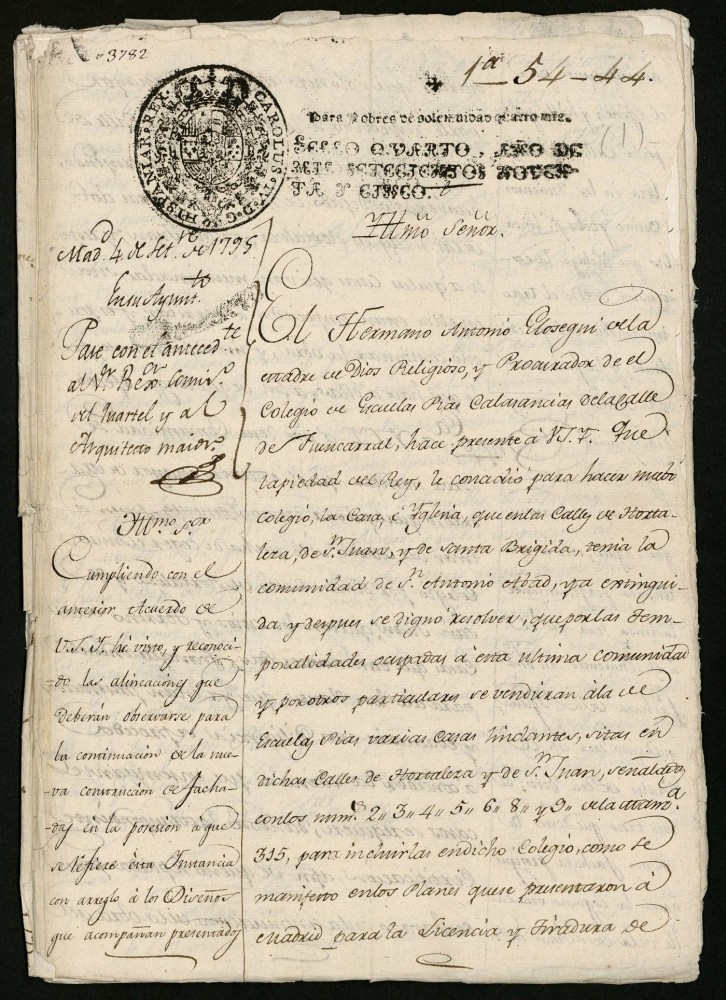 3782
1ª 54-44.
(1)
CAROLUS IV D G HISPANIAR REX
Para Pobres de solemnidad quatro mrs.
SELLO QVARTO, AÑO DE
MIL SETECIENTOS NOVEN
TA Y CINCO.
Yllmo Señor.
Madd. 4 de Setre de 1795.
En su Ayuntto
Pase con el antecedte
al Sr. Rexor Comiso
del Quartel y al
Arquitecto maior.
Yllmo. Sor
Cumpliendo con el
anterior Acuerdo de
V.S.Y. hé visto, y reconoci-
do las alineaciones que
deberán observarse para
la continuación de la nue-
va construccion de facha-
das en la posesión á que
se refiere esta Instancia
con arreglo á los Diseños
que acompañan presentados
El Hermano Antonio Elosegui de la
Madre de Dios Religioso, y Procurador de el
Colegio de Escuelas Pias Calasancias de la Calle
de Fuencarral, hace presente á V.S.Y. Que
la piedad del Rey, le concedió para hacer nuebo
colegio, la Casa, é Yglesia, que en las Calles de Horta-
leza, de Sn. Juan, y de Santa Brigida, tenia la
comunidad de Sn. Antonio Abad, ya extingui-
da, y despues se dignó resolver, que por las Tem-
poralidades ocupadas á esta ultima comunidad
y por otros particulares se vendieran á la de
Escuelas Pias varias Casas lindantes, sitas en
dichas Calles de Hortaleza y de Sn. Juan, señaldas
con los nums 2,, 3,, 4,, 5,, 6,, 8,, y 9,, de la Manza.
315, para incluirlas en dicho Colegio, como se
manifestó en los Planes que se presentaron á
Madrid para la Licencia y Tiradura de